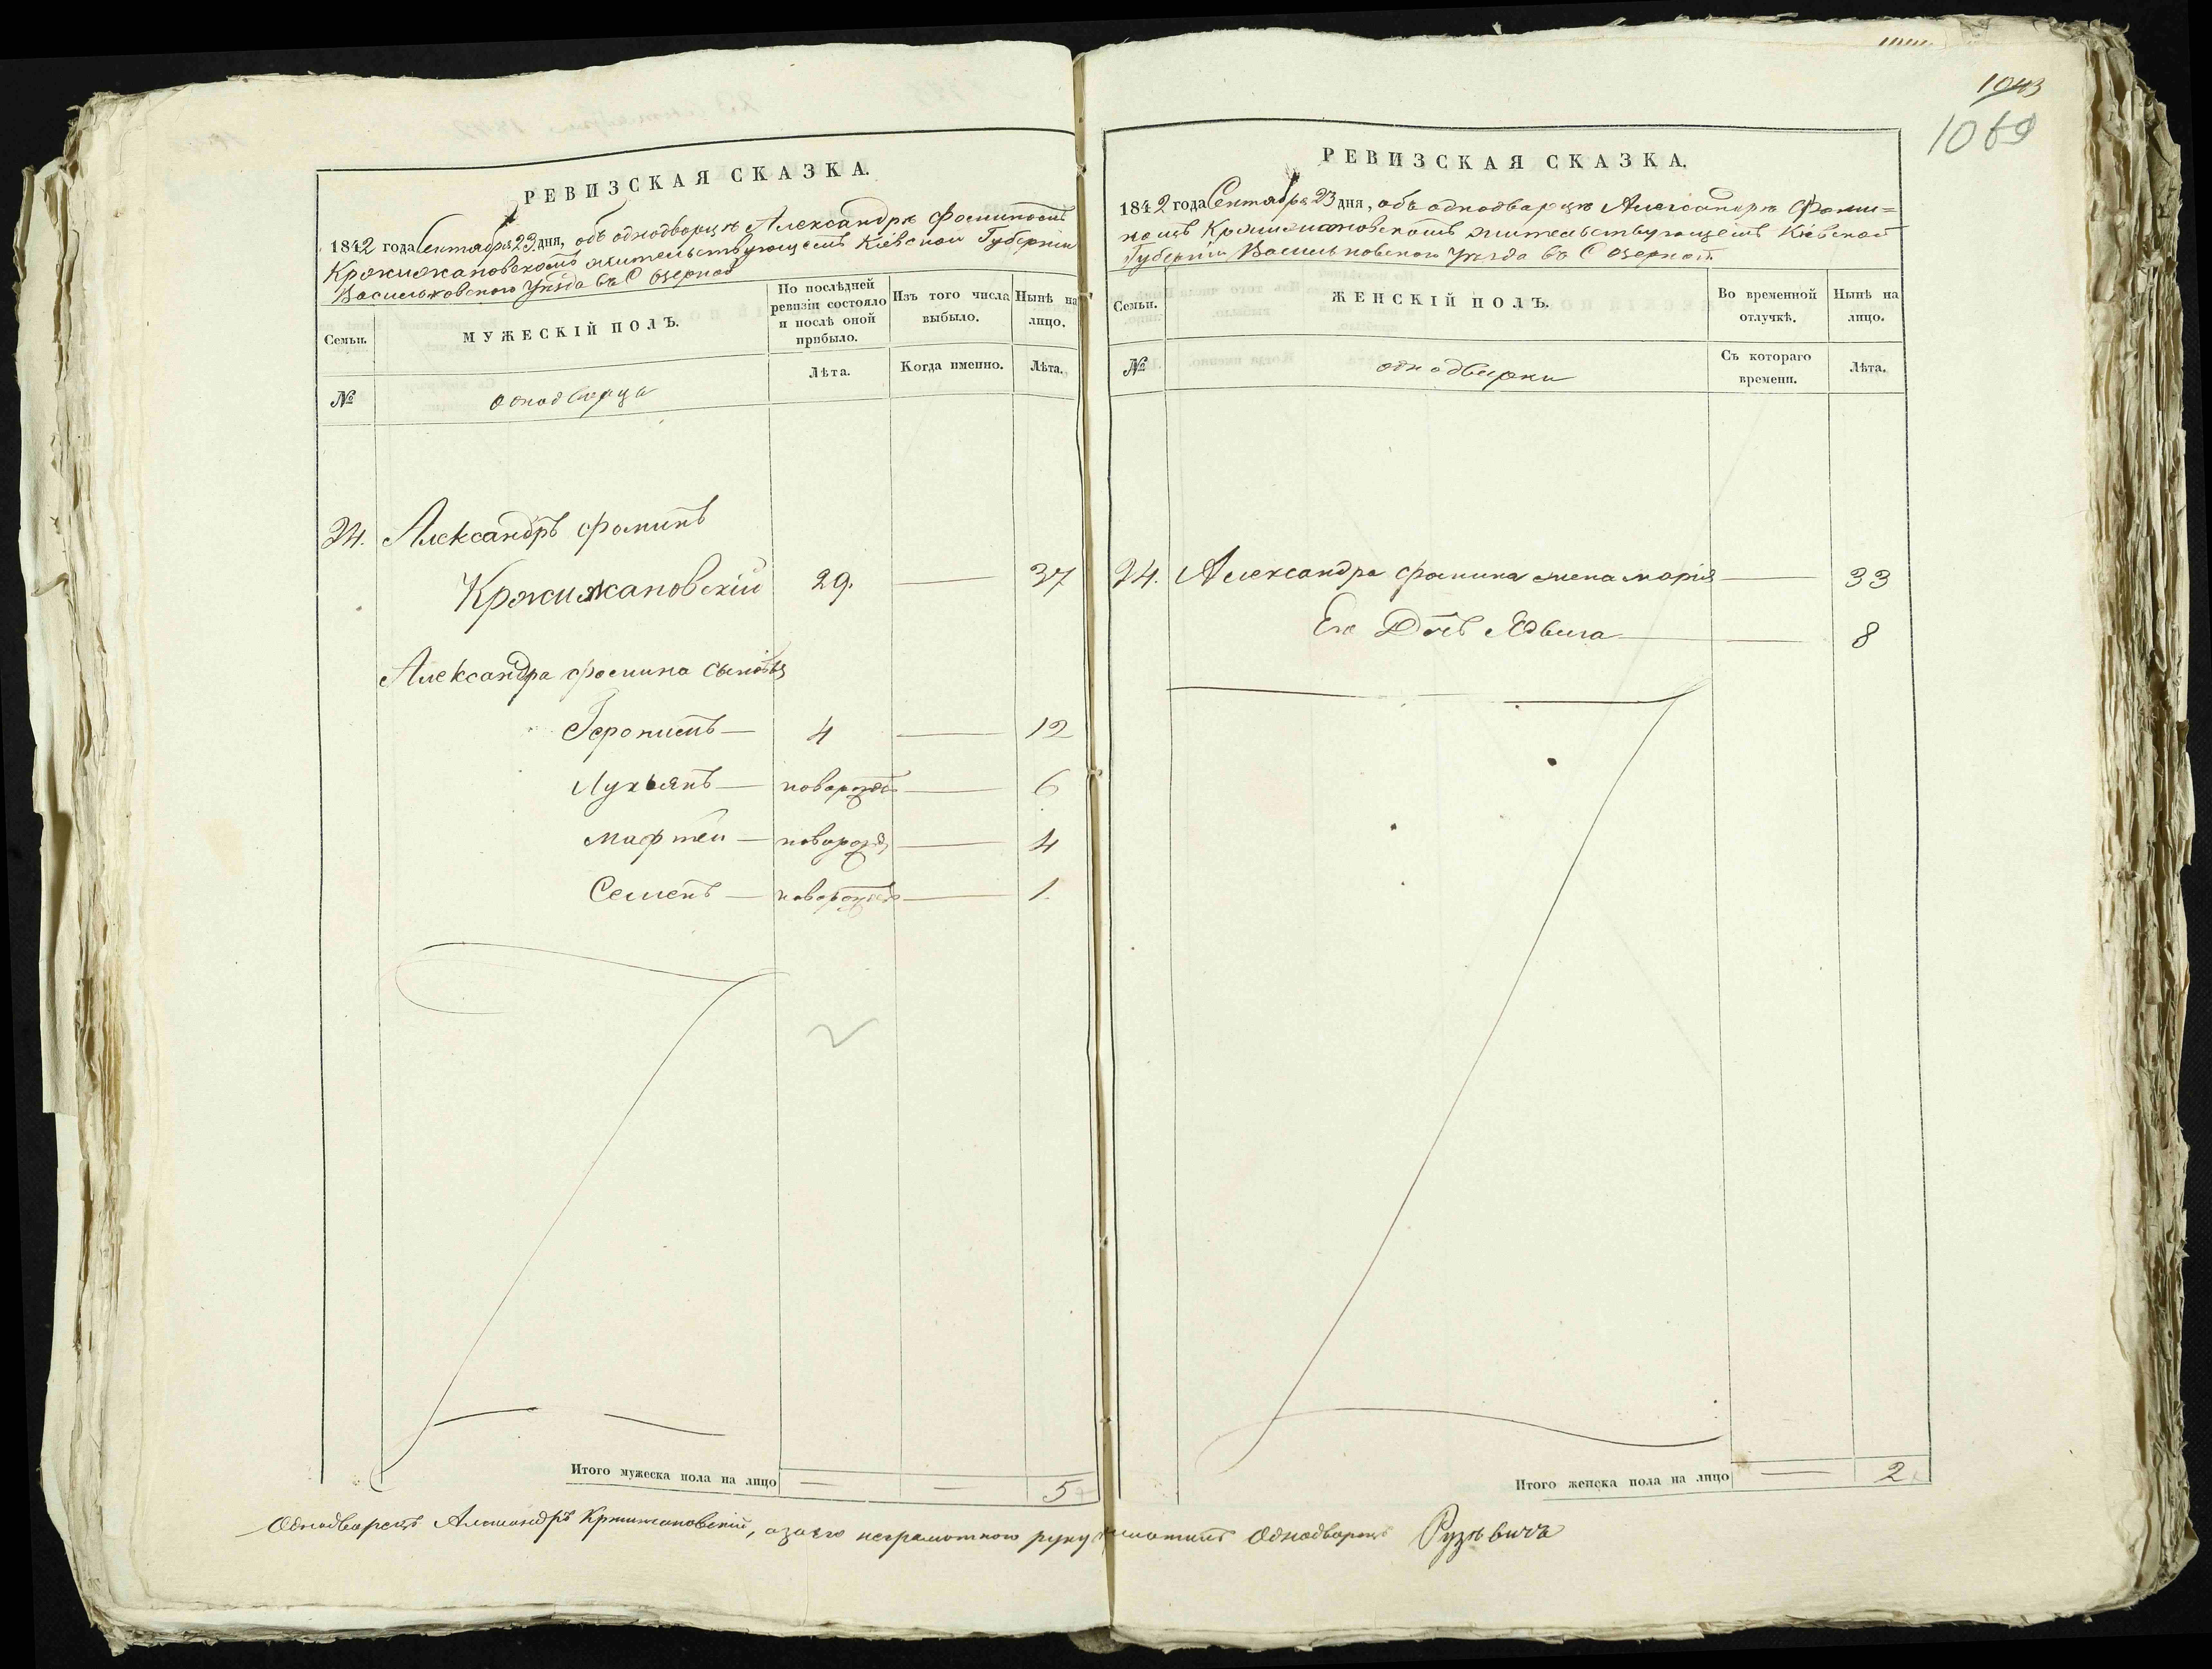 РЕВИЗСКАЯ СКАЗКА.
1842 года Сентября 23 дня, объ однодворцѣ Александрѣ Фоминомъ
Кржижановскомъ жительствующемъ Кіевской Губерніи
Васильковского Уѣзда въ С Озерной
Семьи.
МУЖЕСКІЙ ПОЛЪ.
По послѣдней ревизіи состояло и послѣ оной прибыло.
Изъ того числа выбыло.
Нынѣ на лицо.
№
однодворца
Лѣта.
Когда именно.
Лѣта.
24. Александръ Фоминъ
Кржижановскій 29. — 37
Александра Фомина сыновья
Іеронимъ — 4 — 12
Лукьянъ — новорожд — 6
Мафтей — новорожд — 4
Семенъ — новорожд — 1.
Итого мужеска пола на лицо — — 5
1043
1069
РЕВИЗСКАЯ СКАЗКА.
1842 года Сентября 23 дня, объ однодворцѣ Александрѣ Фоми=
номъ Кржижановскомъ жительствующемъ Кіевской
Губерніи Васильковского Уѣзда въ С Озерной
Семьи.
ЖЕНСКІЙ ПОЛЪ.
Во временной отлучкѣ.
Нынѣ на лицо.
№
однодворки
Съ котораго времени.
Лѣта.
24. Александра Фомина жена Марія — 33
Его Дочь Ядвига — — 8
Итого женска пола на лицо — 2
Однодворецъ Александръ Кржижановскій, а за его неграмотного руку приложилъ Однодворецъ Рузѣвичъ